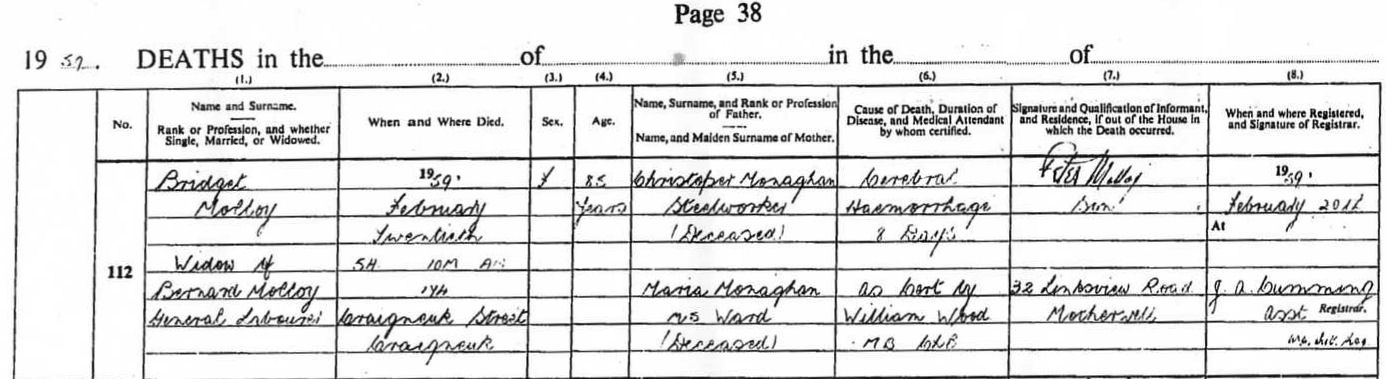 Page 38
19 59. DEATHS in the of in the of
(1.) (2.) (3.) (4.) (5.) (6.) (7.) (8.)
No.
Name and Surname.
Rank or Profession, and whether
Single, Married, or Widowed.
When and Where Died.
Sex.
Age.
Name, Surname, and Rank or Profession
of Father.
Name, and Maiden Surname of Mother.
Cause of Death, Duration of
Disease, and Medical Attendant
by whom certified.
Signature and Qualification of Informant,
and Residence, if out of the House in
which the Death occurred.
When and where Registered,
and Signature of Registrar.
112
Bridget
Molloy
Widow of
Bernard Molloy
General Labourer
1959.
February
Twentieth
5H 10M AM
Craigneuk Street
Craigneuk
F
85
Years
Christoper Monaghan
Steelworker
(Deceased)
Maria Monaghan
MS Ward
(Deceased)
Cerebral
Haemorrhage
8 Days
as Cert by
William Wood
MB ChB
Peter Molloy
Son
32 Linksview Road
Motherwell
1959.
February 20th
At
J. A. Cumming
asst Registrar.